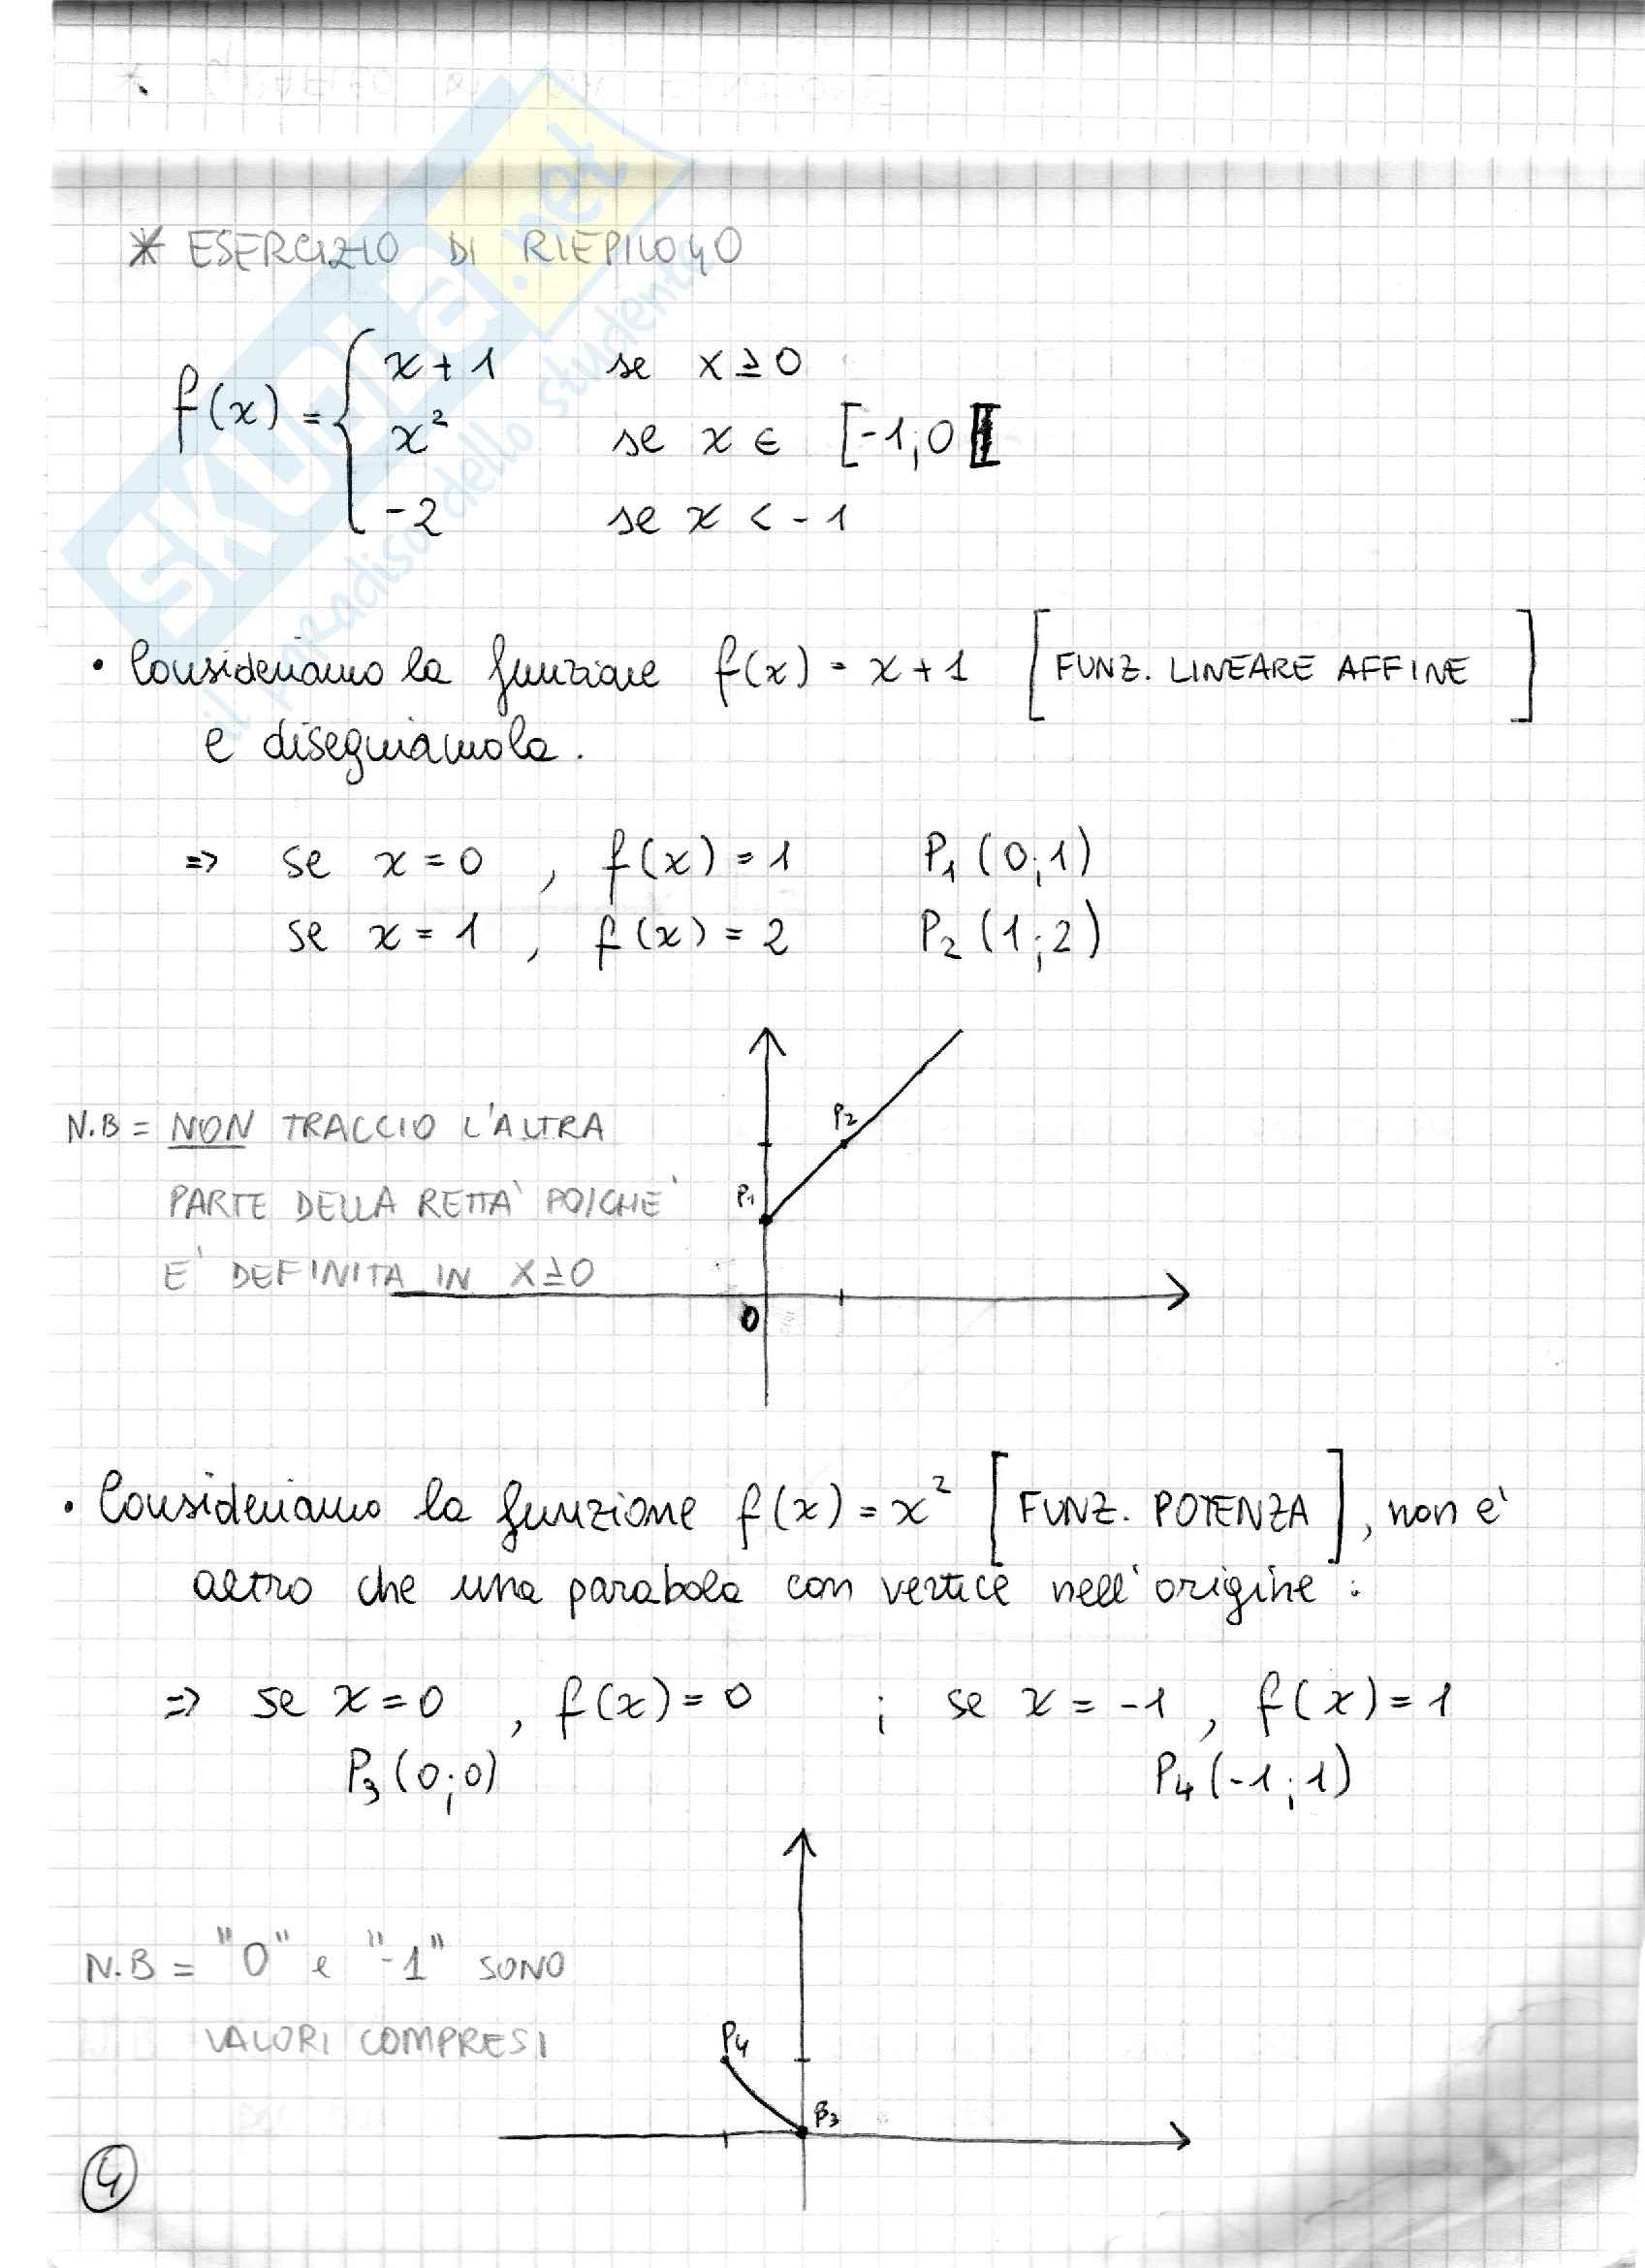 * ESERCIZIO DI RIEPILOGO
f(x) = { x + 1 se x ≥ 0
x² se x ∈ [-1;0[
-2 se x < -1
• Consideriamo la funzione f(x) = x + 1 [FUNZ. LINEARE AFFINE]
e disegniamola.
=> se x = 0 , f(x) = 1 P₁ (0;1)
se x = 1 , f(x) = 2 P₂ (1;2)
P₂
N.B = NON TRACCIO L'ALTRA
P₁
PARTE DELLA RETTA' POICHE'
E' DEFINITA IN X≥0
0
• Consideriamo la funzione f(x) = x² [FUNZ. POTENZA], non e'
altro che una parabola con vertice nell'origine :
=> se x = 0 , f(x) = 0 ; se x = -1 , f(x) = 1
P₃ (0;0) P₄ (-1;1)
N.B = "0" e "-1" SONO
VALORI COMPRESI
P₄
P₃
4
SKUOLA.net
il paradiso dello studente